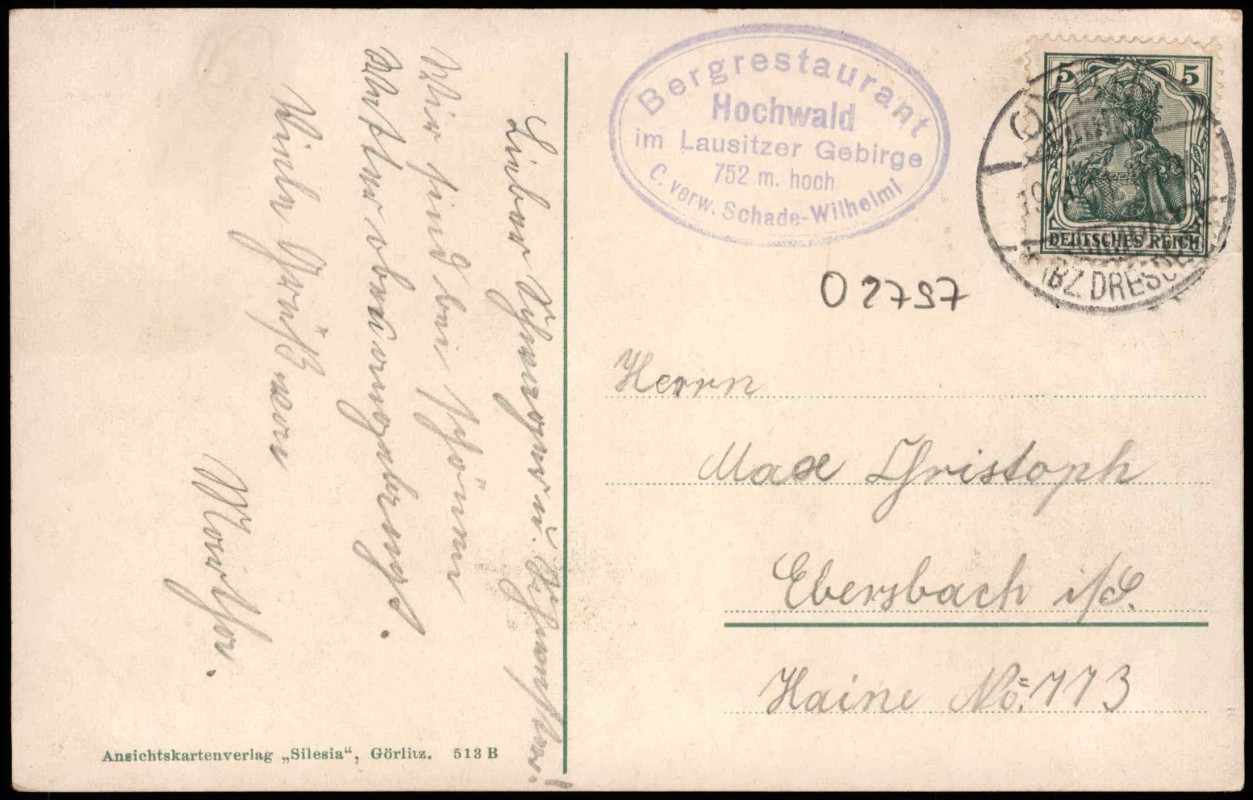 Lieber Schwager u. Schwester!
Wir sind bei schönem
Wetter oben angelangt.
Viele Grüße von
Martha.
Ansichtskartenverlag „Silesia“, Görlitz. 513 B
Bergrestaurant
Hochwald
im Lausitzer Gebirge
752 m. hoch
C. verw. Schade-Wilhelmi
5 5
DEUTSCHES REICH
02797
Herrn
Max Christoph
Ebersbach i/S.
Haine No: 113